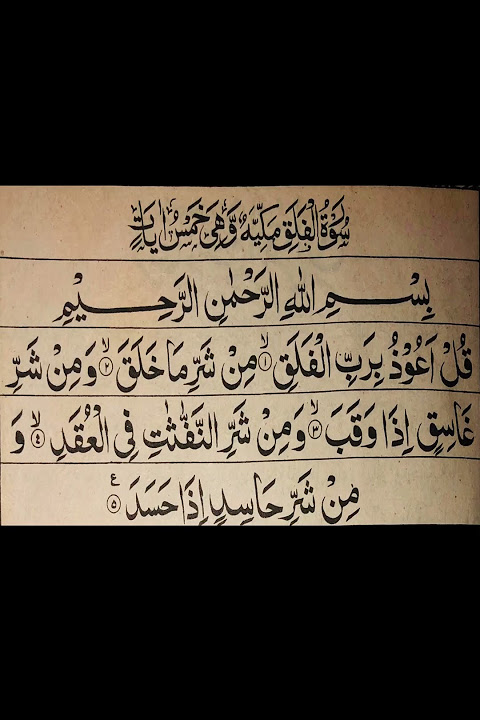 سُوْرَةُ الْفَلَقِ مَكِّيَّةٌ وَّهِیَ خَمْسُ اٰيَاتٍ
بِسْمِ اللّٰهِ الرَّحْمٰنِ الرَّحِيْمِ
قُلْ اَعُوْذُ بِرَبِّ الْفَلَقِ ۙ﴿۱﴾ مِنْ شَرِّ مَا خَلَقَ ۙ﴿۲﴾ وَمِنْ شَرِّ
غَاسِقٍ اِذَا وَقَبَ ۙ﴿۳﴾ وَمِنْ شَرِّ النَّفّٰثٰتِ فِی الْعُقَدِ ۙ﴿۴﴾ وَ
مِنْ شَرِّ حَاسِدٍ اِذَا حَسَدَ ﴿۵﴾ ع